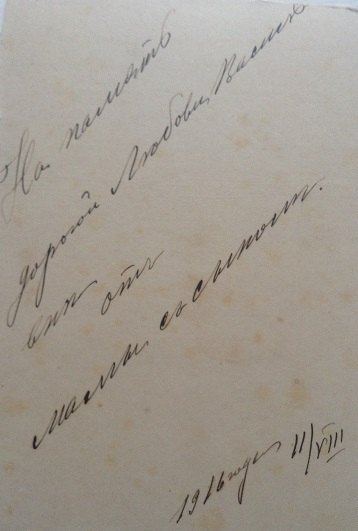 На память
дорогой Любови Василь
евнѣ отъ
мамы съ сыномъ.
1916 года 11/VIII